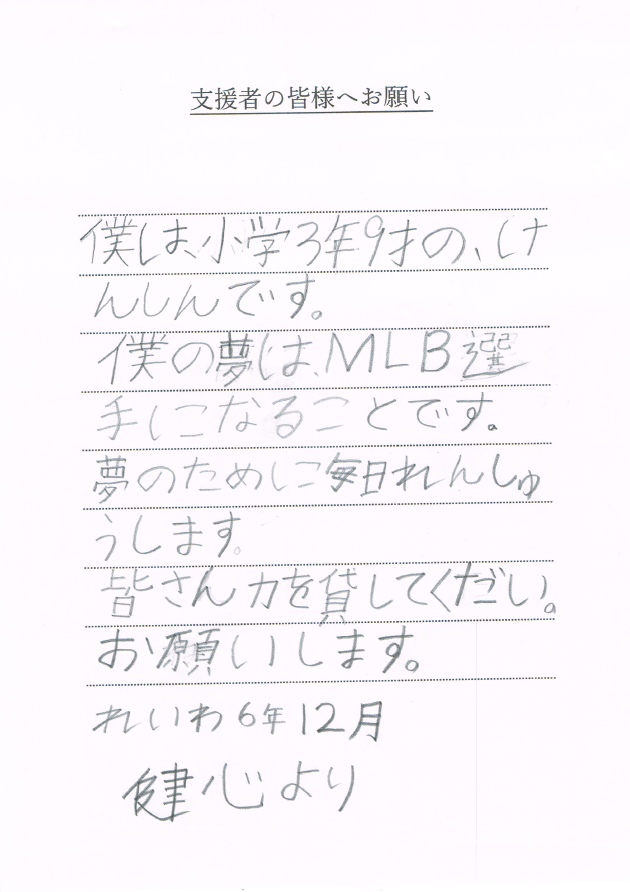 支援者の皆様へお願い
僕は、小学3年9才の、け
んしんです。
僕の夢は、MLB選
手になることです。
夢のために毎日れんしゅ
うします。
皆さん力を貸してくだい。
お願いします。
れいわ6年12月
健心より